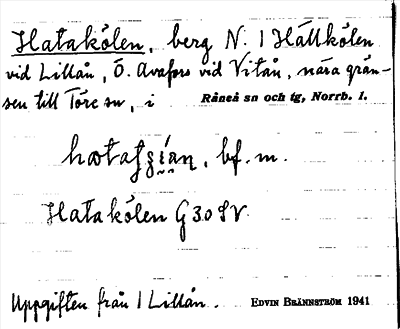 Hatakölen, berg N. I Hällkölen
vid Lillån, Ö. Avafors vid Vitån, nära grän-
sen till Töre sn, i Råneå sn och tg, Norrb. l.
bf. m.
Hatakölen G 30 SV
Uppgiften från I Lillån. EDVIN BRÄNNSTRÖM 1941